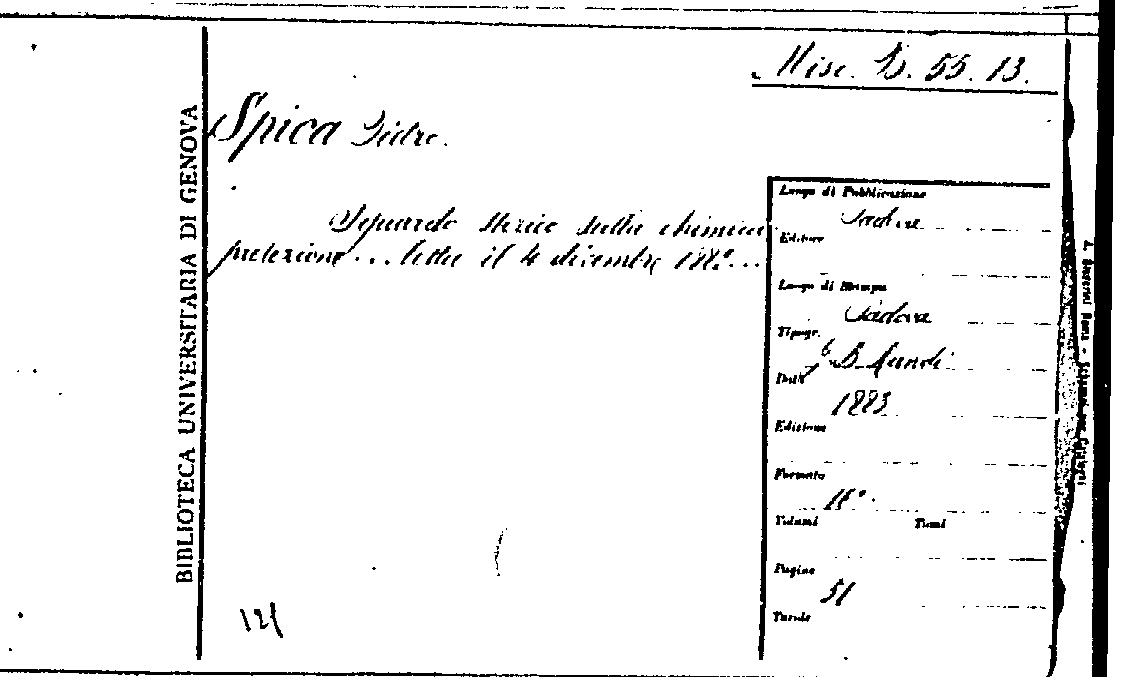 Misc. D. 55. 13.
Spica Pietro.
Sguardo storico sulla chimica
prelezione... letta il 4 dicembre 188...
BIBLIOTECA UNIVERSITARIA DI GENOVA
Luogo di Pubblicazione
Padova
Editore
Luogo di Stampa
Padova
Tipogr.
G. B. Randi
Data
1883
Edizione
Formato
16°.
Volumi Tomi
Pagine
51
Tavole
121